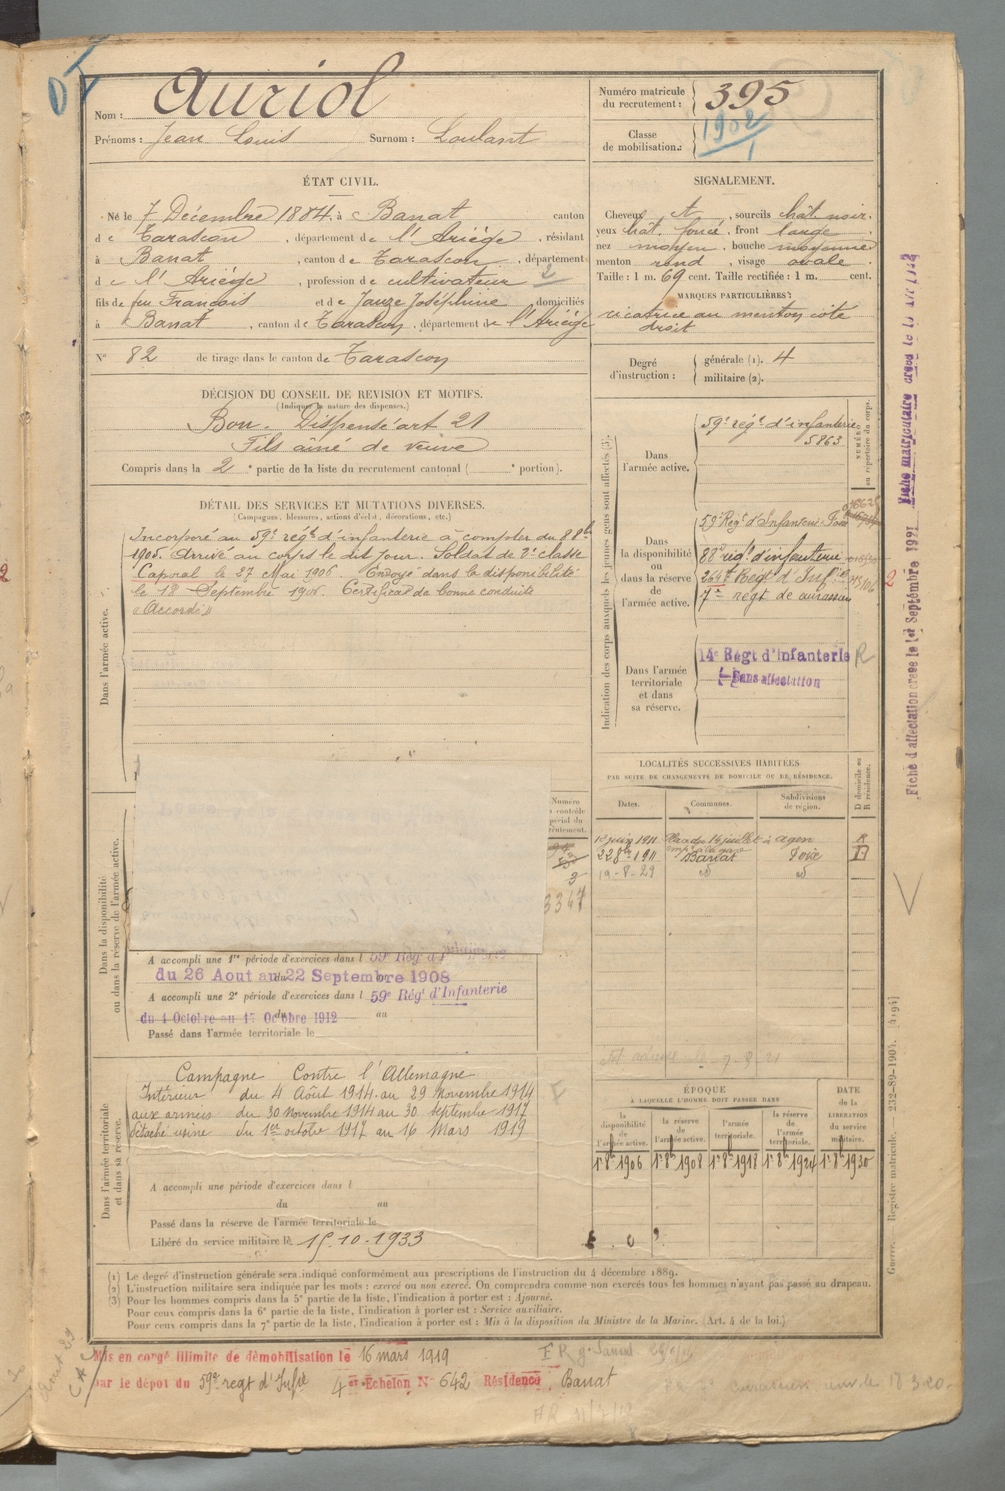 Nom : Auriol
Prénoms : Jean Louis Surnom : Loulant
Numéro matricule du recrutement : 395
Classe de mobilisation : 1902
ÉTAT CIVIL.
Né le 7 Décembre 1884, à Banat canton
de Tarascon, département de l'Ariège, résidant
à Banat, canton de Tarascon, département
de l'Ariège, profession de cultivateur 2
fils de feu François et de Jauze Joséphine domiciliés
à Banat, canton de Tarascon, département de l'Ariège
N° 82 de tirage dans le canton de Tarascon
SIGNALEMENT.
Cheveux et, sourcils chât. noir.
yeux chât. foncé, front large
nez moyen, bouche moyenne
menton rond, visage ovale.
Taille : 1 m. 69 cent. Taille rectifiée : 1 m. cent.
MARQUES PARTICULIÈRES :
cicatrice au menton côté
droit
Degré d'instruction : générale (1). 4
militaire (2).
DÉCISION DU CONSEIL DE REVISION ET MOTIFS.
(Indiquer la nature des dispenses.)
Bon. Dispensé art 21
Fils aîné de veuve
Compris dans la 2e partie de la liste du recrutement cantonal ( e portion).
DÉTAIL DES SERVICES ET MUTATIONS DIVERSES.
(Campagnes, blessures, actions d'éclat, décorations, etc.)
Dans l'armée active.
Incorporé au 59e régt d'infanterie à compter du 8 8bre
1905. Arrivé au corps le dit jour. Soldat de 2e classe
Caporal le 27 Mai 1906. Envoyé dans la disponibilité
le 18 Septembre 1906. Certificat de bonne conduite
"Accordé"
Indication des corps auxquels les jeunes gens sont affectés (3).
NUMÉRO au répertoire du corps.
Dans l'armée active.
59e régt d'infanterie
5863
Dans la disponibilité ou dans la réserve de l'armée active.
59 Regt d'Infanterie Foix
88e régt d'infanterie
7e regt de cuirassiers
Dans l'armée territoriale et dans sa réserve.
14e Régt d'Infanterie R
Sans affectation
LOCALITÉS SUCCESSIVES HABITÉES
PAR SUITE DE CHANGEMENTS DE DOMICILE OU DE RÉSIDENCE.
Dates. Communes. Subdivisions de région. D domicile ou R résidence.
1er juin 1911 Place du 14 juillet à Agen R
22 8bre 1911 Banat Foix D
19-8-29 id id
Dans la disponibilité ou dans la réserve de l'armée active.
3367
A accompli une 1re période d'exercices dans l 59e Rég. d'Infanterie
du 26 Aout au 22 Septembre 1908
A accompli une 2e période d'exercices dans l 59e Régt d'Infanterie
du 1 Octobre au 17 Octobre 1912
Passé dans l'armée territoriale le
Dans l'armée territoriale et dans sa réserve.
Campagne Contre l'Allemagne
Intérieur du 4 Août 1914 au 29 Novembre 1914
aux armées du 30 Novembre 1914 au 30 Septembre 1917
Détaché usine du 1er octobre 1917 au 16 Mars 1919
A accompli une période d'exercices dans l
du au
Passé dans la réserve de l'armée territoriale le
Libéré du service militaire le 15.10.1933
ÉPOQUE
À LAQUELLE L'HOMME DOIT PASSER DANS
la disponibilité de l'armée active. la réserve de l'armée active. l'armée territoriale. la réserve de l'armée territoriale. DATE de la LIBÉRATION du service militaire.
1er 8bre 1906 1er 8bre 1908 1er 8bre 1918 1er 8bre 1924 1er 8bre 1930
(1) Le degré d'instruction générale sera indiqué conformément aux prescriptions de l'instruction du 4 décembre 1889.
(2) L'instruction militaire sera indiquée par les mots : exercé ou non exercé. On comprendra comme non exercés tous les hommes n'ayant pas passé au drapeau.
(3) Pour les hommes compris dans la 5e partie de la liste, l'indication à porter est : Ajourné.
Pour ceux compris dans la 6e partie de la liste, l'indication à porter est : Service auxiliaire.
Pour ceux compris dans la 7e partie de la liste, l'indication à porter est : Mis à la disposition du Ministre de la Marine. (Art. 4 de la loi.)
Mis en congé illimité de démobilisation le 16 mars 1919
par le dépot du 59e regt d'Infie 4e Echelon N° 642 Résidence Banat
Fiche d'affectation créée le 1er Septembre 1921
Fiche matriculaire créée le
Guerre. Registre matricule. — 232-89-1904. [4194]